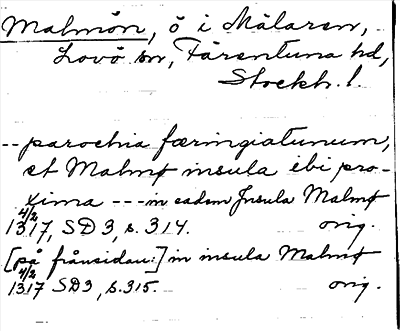 Malmön, ö i Mälaren,
Lovö sn, Färentuna hd,
Stockh. l.
-- parochia færingiatunum,
et Malmø insula ibi pro-
xima --- in eadem Insula Malmø
4/2 1317, SD 3, s. 314. orig.
[på frånsidan:] in insula Malmø
4/2 1317 SD3, s. 315. orig.